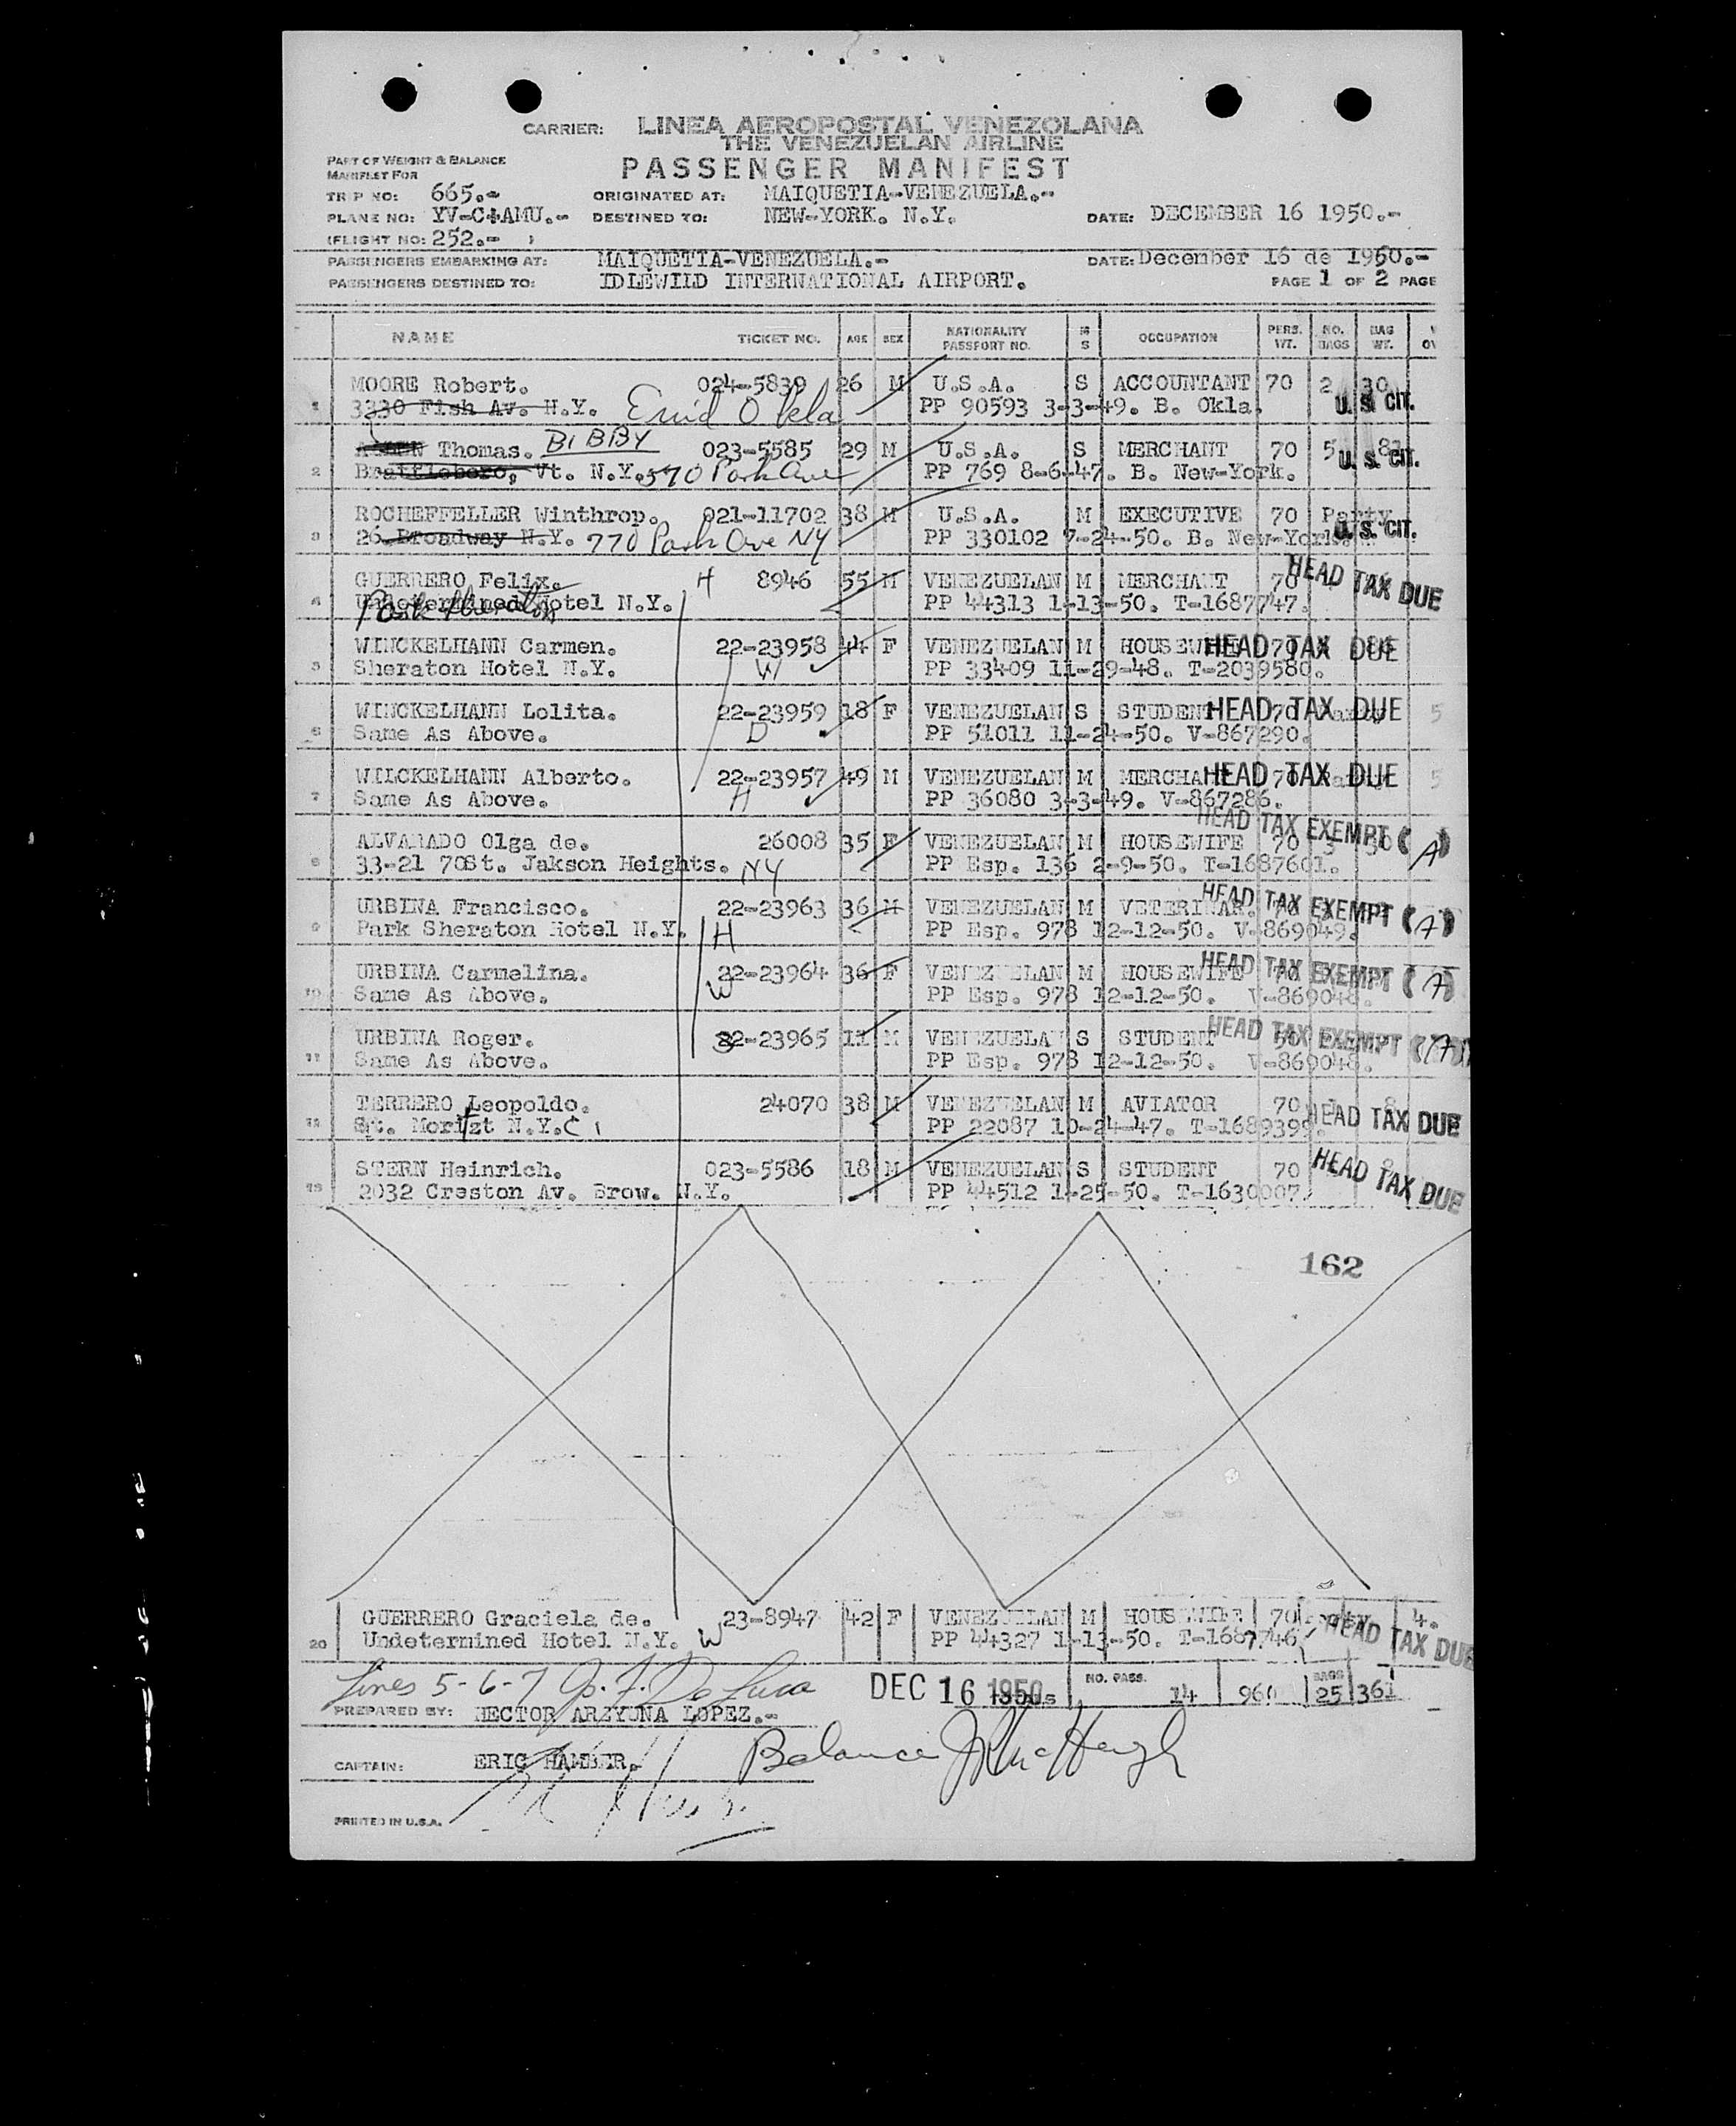 CARRIER: LINEA AEROPOSTAL VENEZOLANA
THE VENEZUELAN AIRLINE
PART OF WEIGHT & BALANCE
MANIFEST FOR
PASSENGER MANIFEST
TRIP NO: 665.- ORIGINATED AT: MAIQUETIA-VENEZUELA.-
PLANE NO: YV-C-AMU.- DESTINED TO: NEW-YORK. N.Y. DATE: DECEMBER 16 1950.-
(FLIGHT NO: 252.- )
PASSENGERS EMBARKING AT: MAIQUETIA-VENEZUELA.- DATE: December 16 de 1950.-
PASSENGERS DESTINED TO: IDLEWILD INTERNATIONAL AIRPORT. PAGE 1 OF 2 PAGE
NAME TICKET NO. AGE SEX NATIONALITY PASSPORT NO. M S OCCUPATION PERS. WT. NO. BAGS BAG WT.
MOORE Robert. 024-5839 26 M U.S.A. S ACCOUNTANT 70 2 30
1 3330 Fish Av. N.Y. Enid Okla PP 90593 3-3-49. B. Okla. U.S. CIT.
Thomas. BIBBY 023-5585 29 M U.S.A. S MERCHANT 70 5
2 Brattleboro, Vt. N.Y. 570 Park Ave PP 769 8-6-47. B. New-York. U.S. CIT.
ROCHEFFELLER Winthrop. 021-11702 38 M U.S.A. M EXECUTIVE 70 Party
3 26 Broadway N.Y. 770 Park Ave NY PP 330102 7-24-50. B. New-York. U.S. CIT.
GUERRERO Felix. H 8946 55 M VENEZUELAN M MERCHANT 70 HEAD TAX DUE
4 Undetermined Hotel N.Y. Park Sheraton PP 44313 1-13-50. T-1687747.
WINCKELHANN Carmen. 22-23958 44 F VENEZUELAN M HOUSEWIFE 70 HEAD TAX DUE
5 Sheraton Hotel N.Y. W PP 33409 11-29-48. T-2039580.
WINCKELHANN Lolita. 22-23959 18 F VENEZUELAN S STUDENT 70 HEAD TAX DUE 5
6 Same As Above. D PP 51011 11-24-50. V-867290.
WILCKELHANN Alberto. 22-23957 49 M VENEZUELAN M MERCHANT 70 HEAD TAX DUE 5
7 Same As Above. H PP 36080 3-3-49. V-867286.
ALVARADO Olga de. 26008 35 F VENEZUELAN M HOUSEWIFE 70 3 30 HEAD TAX EXEMPT (A)
8 33-21 70St. Jakson Heights. NY PP Esp. 136 2-9-50. T-1687601.
URBINA Francisco. 22-23963 36 M VENEZUELAN M VETERINAR. HEAD TAX EXEMPT (A)
9 Park Sheraton Hotel N.Y. H PP Esp. 978 12-12-50. V-869049.
URBINA Carmelina. 22-23964 36 F VENEZUELAN M HOUSEWIFE 70 HEAD TAX EXEMPT (A)
10 Same As Above. W PP Esp. 978 12-12-50. V-869048.
URBINA Roger. 22-23965 11 M VENEZUELA S STUDENT 50 HEAD TAX EXEMPT (A)
11 Same As Above. PP Esp. 978 12-12-50. V-869048.
TERRERO Leopoldo. 24070 38 M VENEZUELAN M AVIATOR 70 HEAD TAX DUE
12 St. Moritzt N.Y.C. PP 22087 10-24-47. T-1689399.
STERN Heinrich. 023-5586 18 M VENEZUELAN S STUDENT 70 HEAD TAX DUE
13 2032 Creston Av. Brow. N.Y. PP 44512 1-25-50. T-1630007.
162
GUERRERO Graciela de. 23-8947 42 F VENEZUELAN M HOUSEWIFE 70 Party 4.
20 Undetermined Hotel N.Y. W PP 44327 1-13-50. T-1687746 HEAD TAX DUE
Lines 5-6-7 J. F. De Luca DEC 16 1950 NO. PASS. 14 960 BAGS 25 361
PREPARED BY: HECTOR ARZYUNA LOPEZ.-
Balance
CAPTAIN: ERIC HAMBER.
PRINTED IN U.S.A.